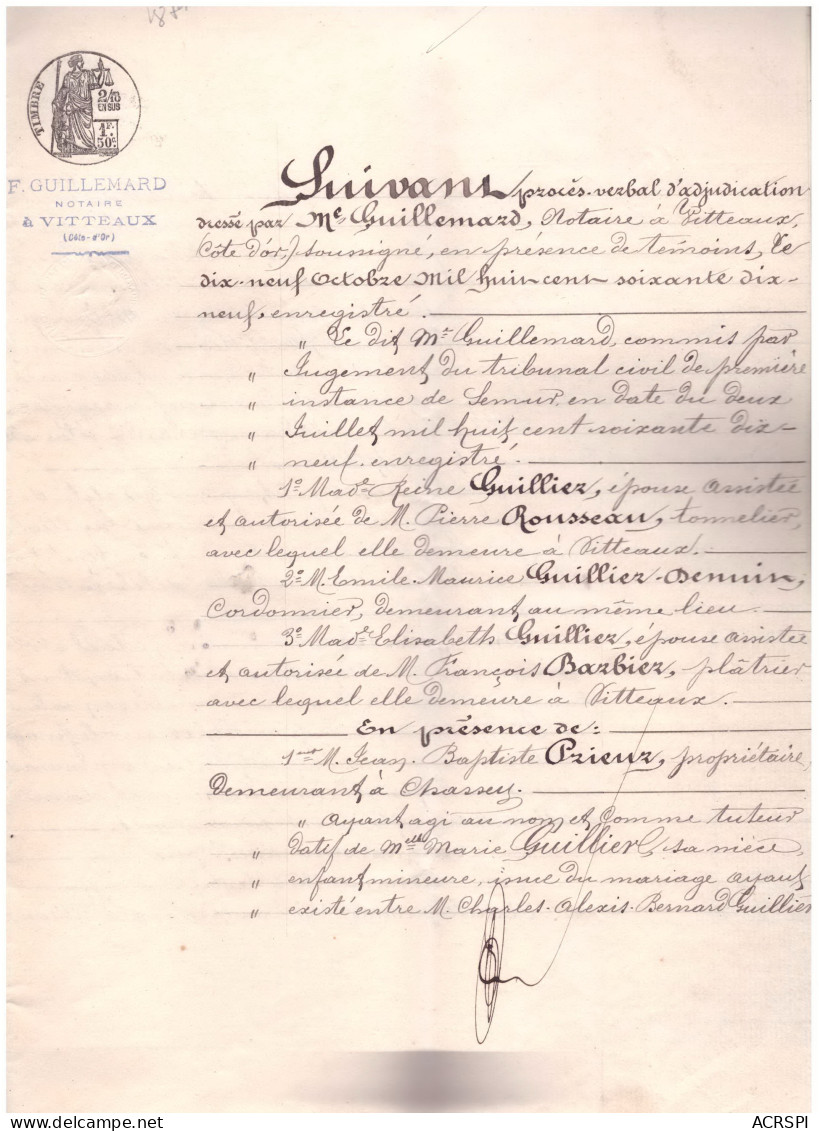 TIMBRE
2/10
EN SUS
1F.
50c.
F. GUILLEMARD
NOTAIRE
à VITTEAUX
(Côte-d'Or)
Suivant procès-verbal d'adjudication
dressé par Me Guillemard, Notaire à Vitteaux,
Côte d'or,) soussigné, en présence de témoins, Le
dix-neuf Octobre Mil huit cent soixante dix-
neuf, enregistré.
" Le dit Me Guillemard, commis par
" Jugement du tribunal civil de première
" instance de Semur, en date du deux
" Juillet mil huit cent soixante dix-
" neuf. enregistré.
1o Made Reine Guillier, épouse assistée
et autorisée de M. Pierre Rousseau, tonnelier,
avec lequel elle demeure à Vitteaux.
2o M. Emile-Maurice Guillier-Demuin,
Cordonnier, demeurant au même lieu.
3o Made Elisabeth Guillier, épouse assistée
et autorisée de M. François Barbier, plâtrier
avec lequel elle demeure à Vitteaux.
En présence de:
1ent M. Jean-Baptiste Prieur, propriétaire,
demeurant à Chassey.
" Ayant agi au nom et comme tuteur
" datif de Melle Marie Guillier, sa nièce,
" enfant mineure, issue du mariage ayant
" existé entre M. Charles-Alexis-Bernard Guillier
ACRSPI